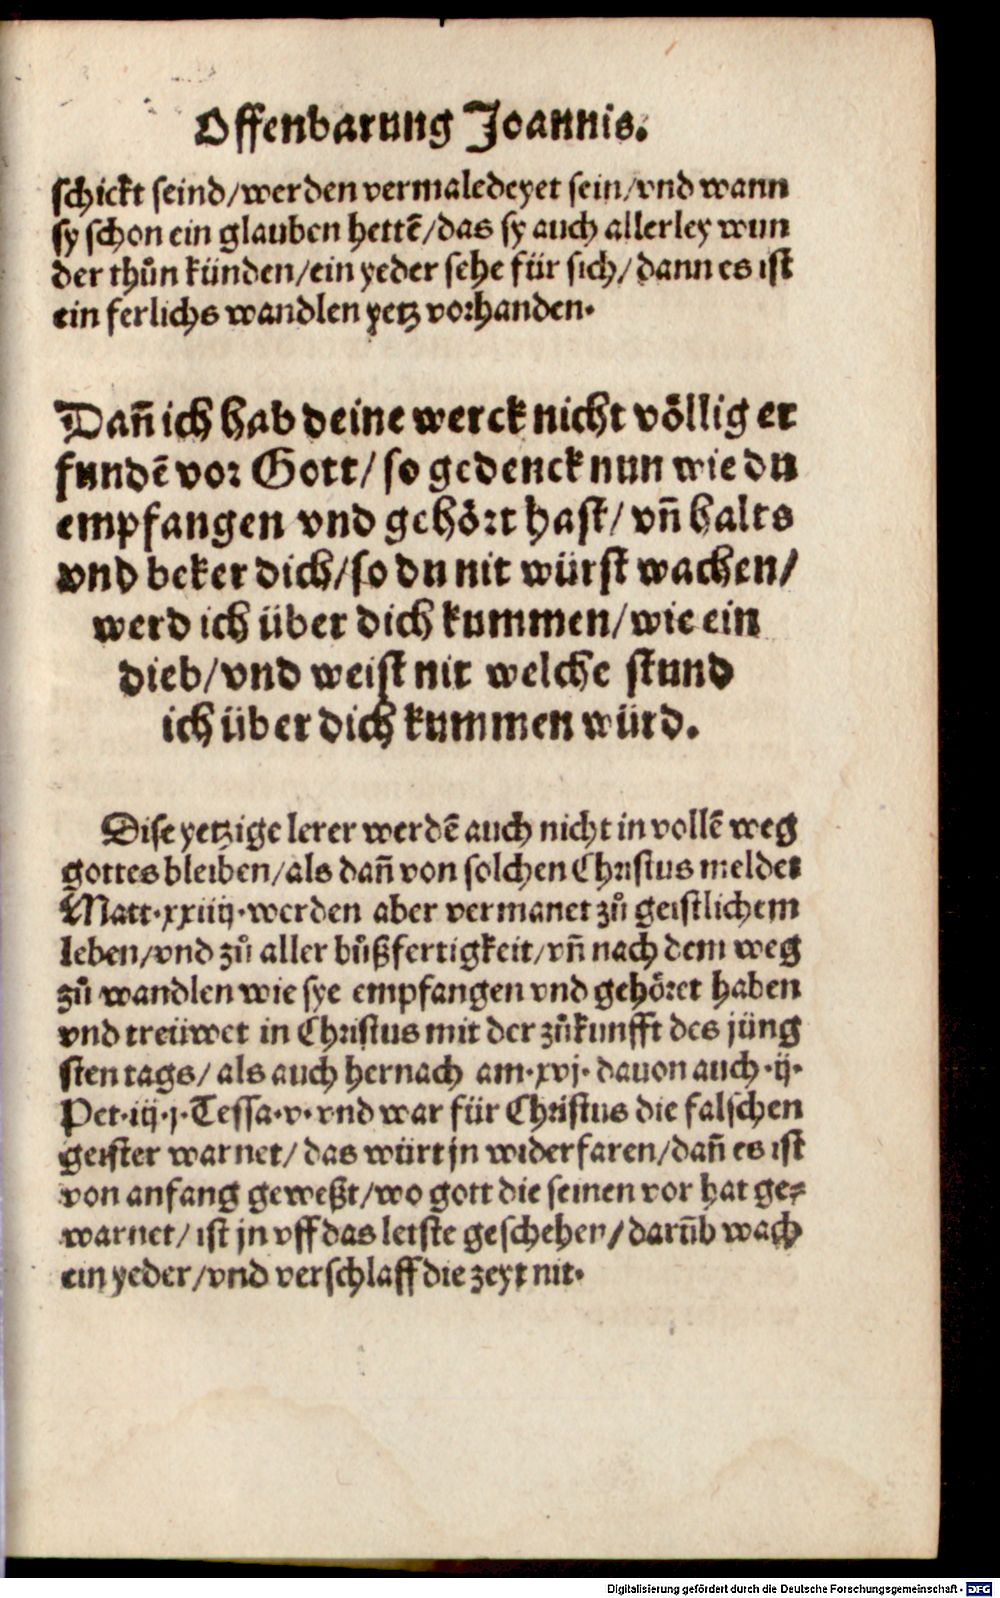 Offenbarung Joannis.
schickt seind/werden vermaledeyet sein/vnd wann
sy schon ein glauben hettē/das sy auch allerley wun
der thůn künden/ein yeder sehe für sich/dann es ist
ein ferlichs wandlen yetz vorhanden.
Dañ ich hab deine werck nicht völlig er
fundē vor Gott/ so gedenck nun wie du
empfangen vnd gehört hast/ vñ halts
vnd beker dich/so du nit würst wachen/
werd ich über dich kummen/wie ein
dieb/vnd weist nit welche stund
ich über dich kummen würd.
Dise yetzige lerer werdē auch nicht in vollē weg
gottes bleiben/als dañ von solchen Christus meldet
Matt.xxiiij.werden aber vermanet zů geistlichem
leben/vnd zů aller bůßfertigkeit/vñ nach dem weg
zů wandlen wie sye empfangen vnd gehöret haben
vnd treüwet in Christus mit der zůkunfft des jüng
sten tags/ als auch hernach am.xvj.dauon auch.ij.
Pet.iij.j.Tessa.v.vnd war für Christus die falschen
geister warnet/ das würt jn widerfaren/dañ es ist
von anfang geweßt/wo gott die seinen vor hat ge-
warnet/ ist jn vff das letste geschehen/darūb wach
ein yeder/vnd verschlaff die zeyt nit.
Digitalisierung gefördert durch die Deutsche Forschungsgemeinschaft - DFG